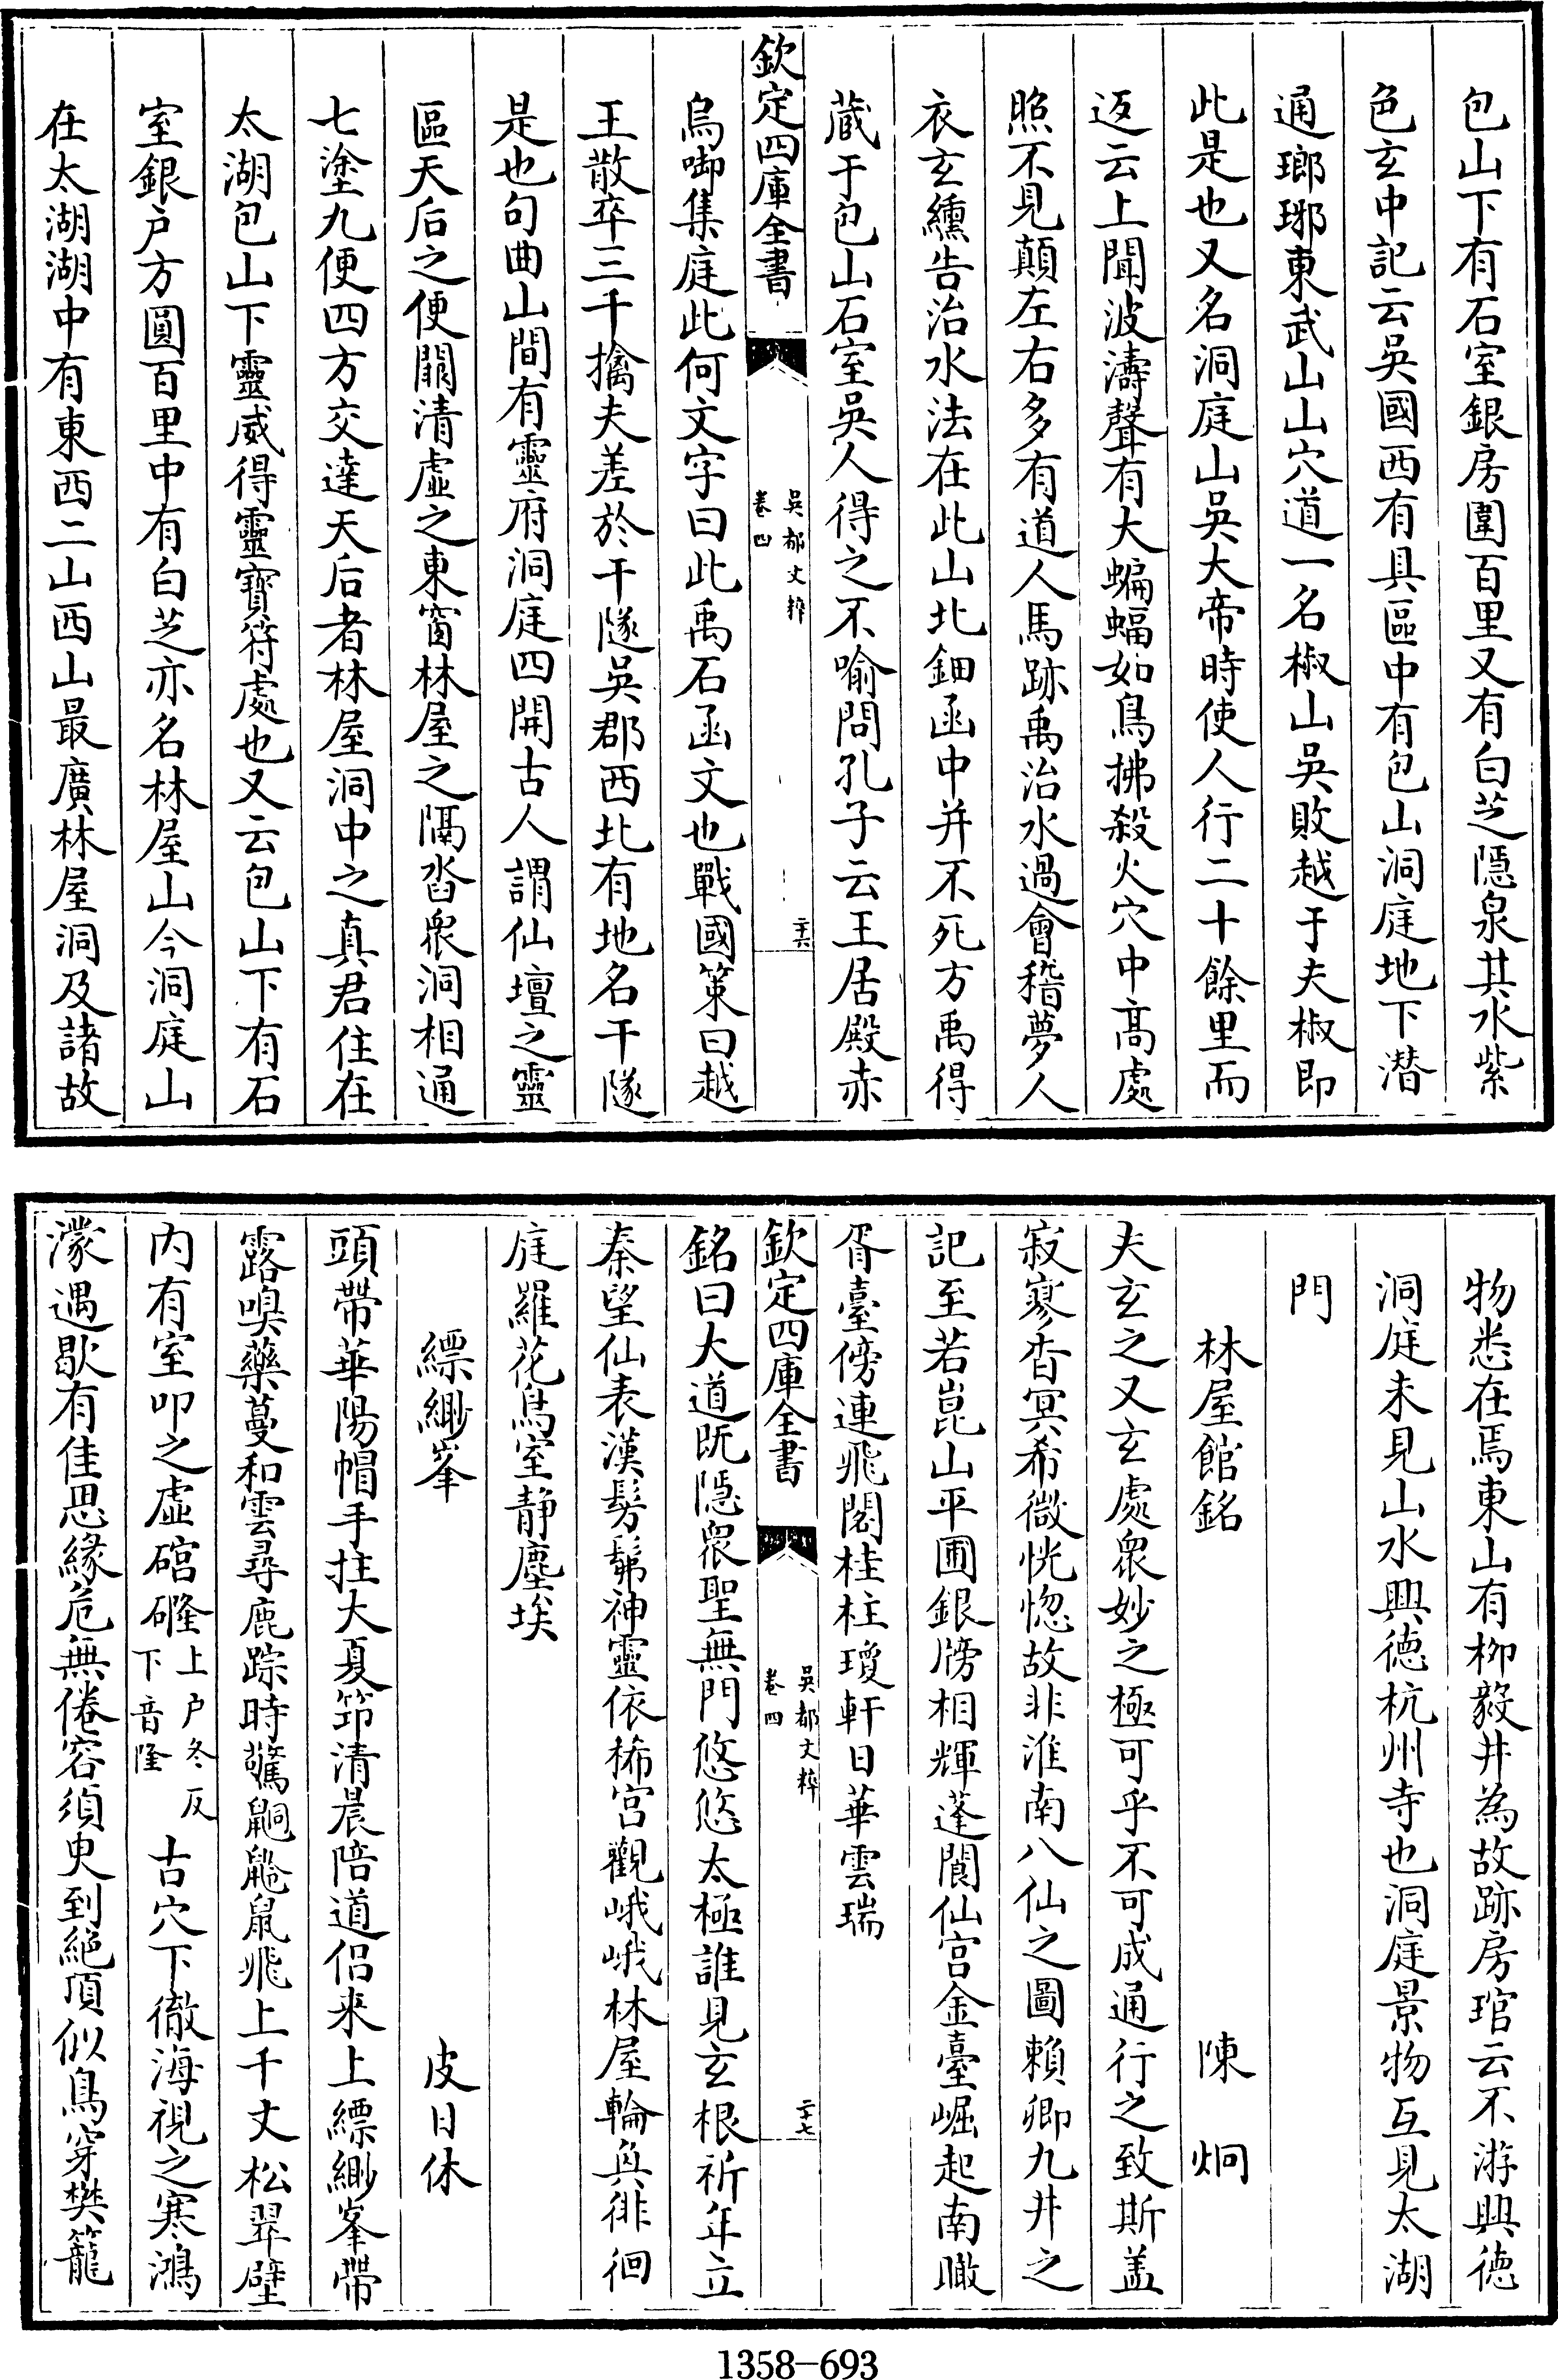 包山下有石室銀房圍百里又有白芝隠泉其水紫
色玄中記云吳國西有具區中有包山洞庭地下潛
通瑯琊東武山山穴道一名椒山吳敗越于夫椒即
此是也又名洞庭山吳大帝時使人行二十餘里而
返云上聞波濤聲有大蝙蝠如鳥拂殺火穴中髙處
照不見顛左右多有道人馬跡禹治水過會稽夢人
衣玄纁告治水法在此山北鈿函中并不死方禹得
蔵于包山石室吳人得之不喻問孔子云王居殿赤
欽定四庫全書
吳都文粹
卷四
二十六
烏啣集庭此何文字曰此禹石函文也戰國策曰越
王散卒三千擒夫差於干隧吳郡西北有地名干隧
是也句曲山間有靈府洞庭四開古人謂仙壇之靈
區天后之便闕清虛之東窗林屋之隔沓衆洞相通
七塗九便四方交逹天后者林屋洞中之真君住在
太湖包山下靈威得靈寶符處也又云包山下有石
室銀户方圓百里中有白芝亦名林屋山今洞庭山
在太湖湖中有東西二山西山最廣林屋洞及諸故
物悉在焉東山有栁毅井為故跡房琯云不游興徳
洞庭未見山水興徳杭州寺也洞庭景物互見太湖
門
林屋館銘　陳炯
夫玄之又玄處衆妙之極可乎不可成通行之致斯葢
寂寥杳冥希微恍惚故非淮南八仙之圖賴卿九井之
記至若崑山平圃銀牓相輝蓬閬仙宫金臺崛起南瞰
胥臺傍連飛閣桂柱瓊軒日華雲瑞
欽定四庫全書
吳都文粹
卷四
二十七
銘曰大道旣隠衆聖無門悠悠太極誰見玄根祈年立
秦望仙表漢髣髴神靈依稀宫觀峨峨林屋輪奐徘徊
庭羅花鳥室静塵埃
縹緲峯　皮日休
頭帶華陽帽手拄大夏笻清晨陪道侣来上縹緲峯帶
露嗅藥蔓和雲尋鹿踪時驚䶄鼯鼠飛上千丈松翠壁
内有室叩之虚𥓂磪上户冬反下音隆古穴下徹海視之寒鴻
濛遇歇有佳思緣危無倦容須臾到絶頂似鳥穿樊籠
1358-693